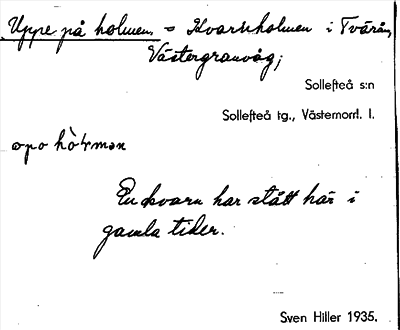 Uppe på holmen = Kvarnholmen i Tvärån,
Västergranvåg;
Sollefteå s:n
Sollefteå tg., Västernorrl. l.
En kvarn har stått här i
gamla tider.
Sven Hiller 1935.